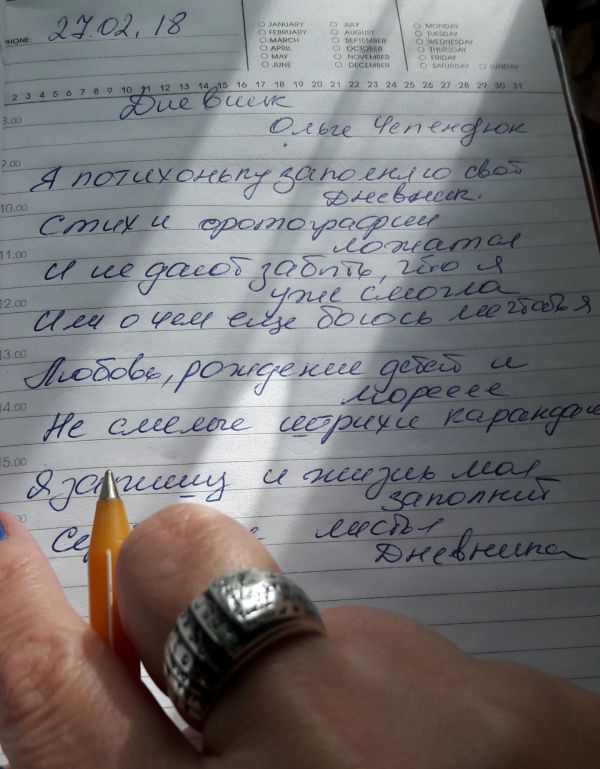 PHONE: 27.02.18
JANUARY JULY MONDAY
FEBRUARY AUGUST TUESDAY
MARCH SEPTEMBER WEDNESDAY
APRIL OCTOBER THURSDAY
MAY NOVEMBER FRIDAY
JUNE DECEMBER SATURDAY SUNDAY
2 3 4 5 6 7 8 9 10 11 12 13 14 15 16 17 18 19 20 21 22 23 24 25 26 27 28 29 30 31
Дневник
8.00
Ольге Чепендюк
9.00
Я потихоньку заполняю свой
Дневник.
10.00
Стихи фотографии
ложатся
11.00
И не дают забыть, что я
уже смогла
12.00
Или о чем еще боюсь мечтать я
13.00
Любовь, рождение детей и
мореееее
14.00
Не смелые штрихи карандаш
15.00
Я запишу и жизнь моя
заполнит
листы
Дневника